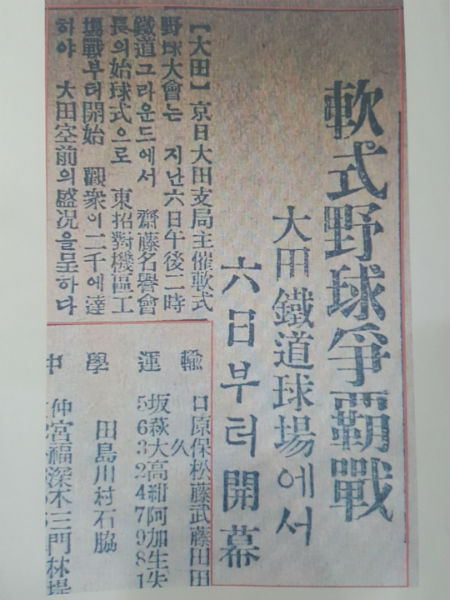 軟式野球爭覇戰
大田鐵道球場에서
六日부터開幕
【大田】京日大田支局主催軟式
野球大會는 지난六日午後二時
鐵道그라운드에서 齋藤名譽會
長의始球式으로 東招對機區工
塲戰부터開始 觀衆이二千에達
하야 大田空前의盛况을呈하다
輸 口原保松藤武藤田田
久
運 坂萩大高紺阿加生矢
563247981
學 田島川村石脇
中 仲宮福深木三門林堤